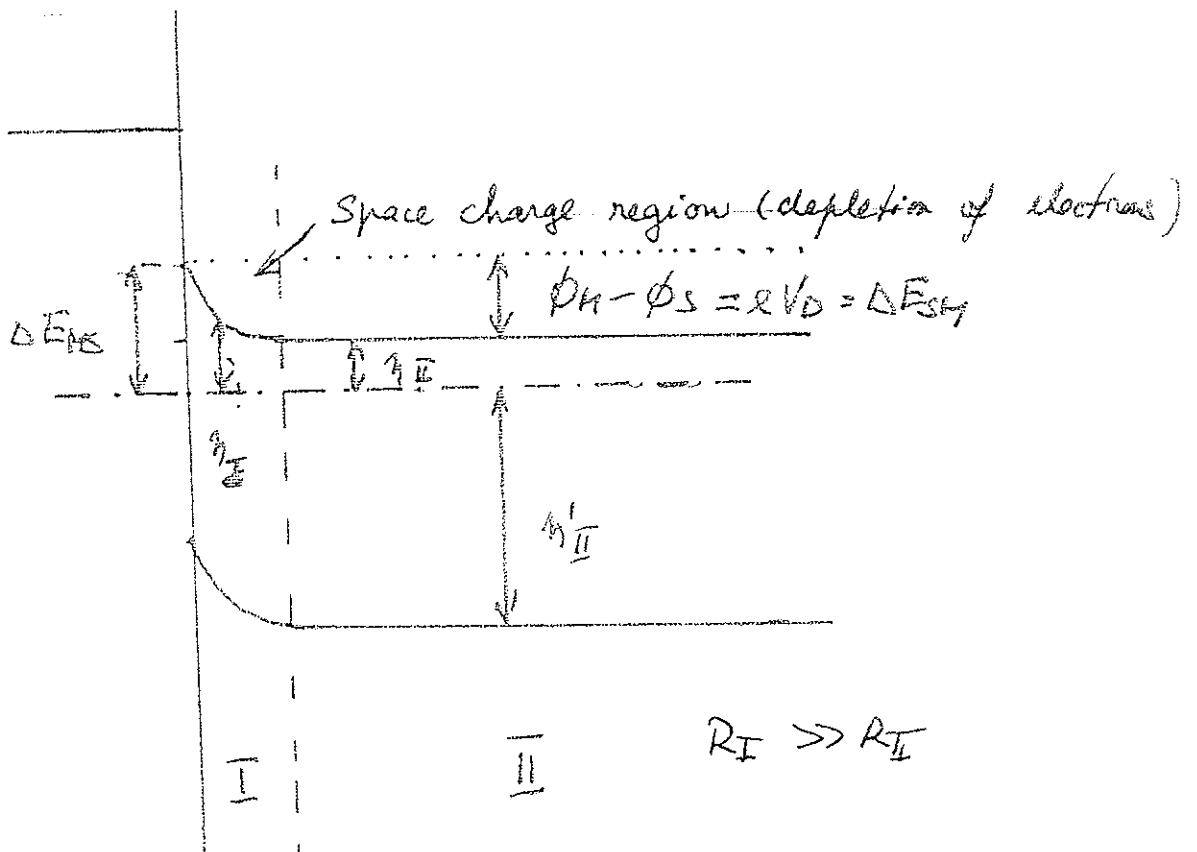 Space charge region (depletion of electrons)
ϕM - ϕS = eVD = ΔESM
ΔEMS
ηII
ηI
η'II
RI >> RII
I
II